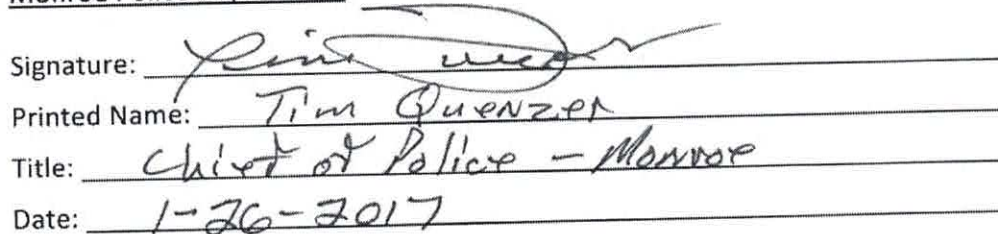 Signature: Tim Quenzer
Printed Name: Tim Quenzer
Title: Chief of Police - Monroe
Date: 1-26-2017